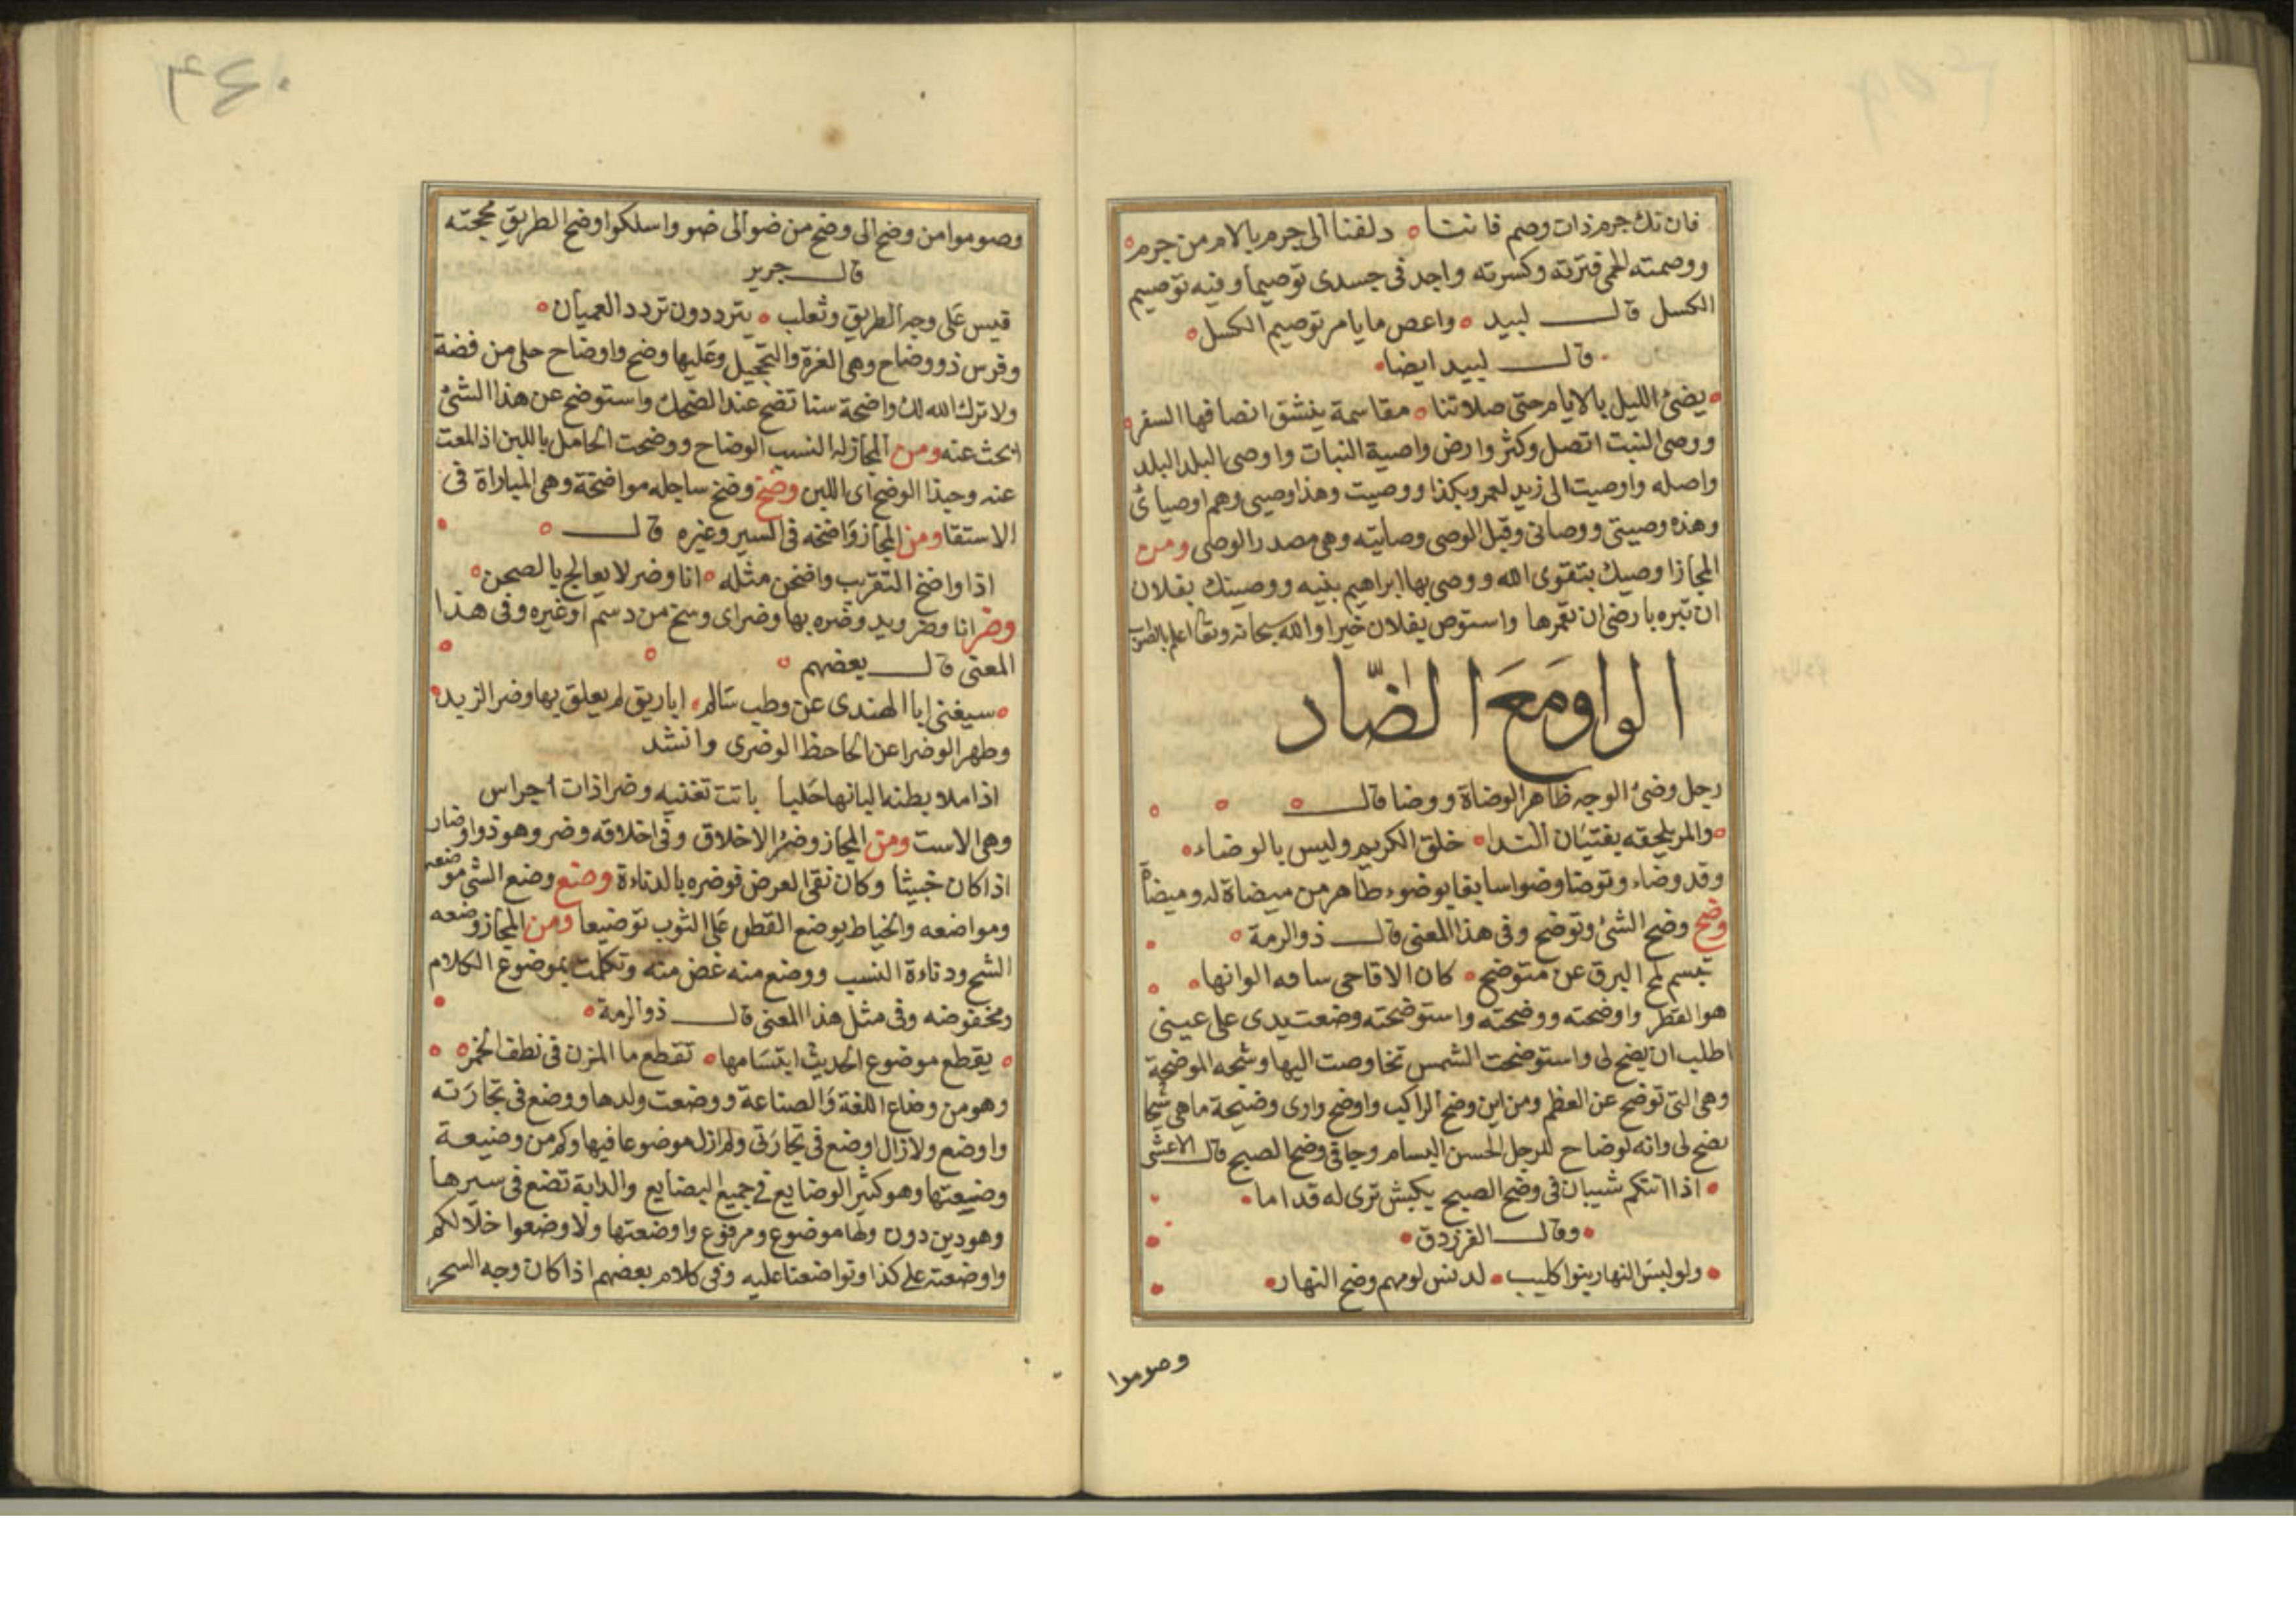 فان تك جرم ذات وصم فانتا دلفنا الى جرم بالام من جرم
ووصمته الحمى فترته وكسرته واجد فى جسدى توصيما وفيه توصيم
الكسل قال لبيد واعص ما يامر توصيم الكسل
قال لبيد ايضا
يضى الليل بالايام حتى صلاتنا مقاسمة ينشق انصافها السفر
ووصى النبت اتصل وكثر وارض واصية النبات واوصى البلد البلد
واصله واوصيت الى زيد لعمرو بكذا ووصيت وهذا وصيى وهم اوصيائ
وهذه وصيتى ووصاتى وقبل الوصى وصايته وهى مصدر الوصى ومن
المجاز اوصيك بتقوى الله ووصى بها ابراهيم بنيه ووصيتك بفلان
ان تبره بارضى ان تعمرها واستوص بفلان خيرا والله سبحانه وتعا اعلم بالصواب
الواو مَعَ الضّاد
رجل وضئ الوجه ظاهر الوضاة ووضا قال
والمر يلحقه بفتيان الندا خلق الكريم وليس بالوضاء
وقد وضاء وتوضا وضوا سابغا بوضوء طاهر من ميضاة له وميضاة
وضح وضح الشئ وتوضح وفى هذا المعنى قال ذو الرمة
تبسم لمح البرق عن متوضح كان الاقاحى سافه الوانها
هو القطر واوضحته ووضحته واستوضحته وضعت يدى على عينى
اطلب ان يضح لى واستوضحت الشمس تخاوصت اليها وشجه الموضحة
وهى التى توضح عن العظم ومن اين وضح الراكب واوضح وارى وضيحة ما هى شيحا
يضح لى وانه لوضاح للرجل الحسن البسام وجا فى وضح الصبح قال الاعشى
اذا اتتكم شيبان فى وضح الصبح بكبش ترى له قداما
وقال الفرزدق
ولو لبس النهار بنوا كليب لدنس لومهم وضح النهار
وصوموا
٤٦٠
وصوموا من وضح الى وضح من ضو الى ضو واسلكوا وضح الطريق محجته
قال جرير
قيس على وجه الطريق وثعلب يترددون تردد العميان
وفرس ذو وضاح وهى الغرة والتحجيل وعليها وضح واوضاح حلى من فضة
ولا ترك الله لك واضحة سنا تضح عند الضحك واستوضح عن هذا الشئ
ابحث عنه ومن المجاز له النسب الوضاح ووضحت الحامل باللبن اذا لمعت
عنه وحبذا الوضح اى اللبن وضخ وضخ ساجله مواضخة وهى المباراة فى
الاستقا ومن المجاز واضخه فى السير وغيره قال
اذا واضخ التقريب واضخن مثله انا وضر لا يعالج بالصحن
وضر انا وضر ويد وضره بها وضر اى وسخ من دسم او غيره وفى هذا
المعنى قال بعضهم
سيغنى ابا الهندى عن وطب سالم اباريق لم يعلق بها وضر الزبد
وطهر الوضرا عن الحاحظ الوضرى وانشد
اذا ملا بطنه البانها حلبا باتت تغنيه وضرا ذات اجراس
وهى الاست ومن المجاز وضر الاخلاق وفى اخلاقه وضر وهو ذو اوضار
اذا كان خبيثا وكان نقى العرض فوضره بالدناءة وضع وضع الشى موضعه
ومواضعه والخياط يوضع القطن على الثوب توضيعا ومن المجاز وضعه
الشح ودناءة النسب ووضع منه غض منه وتكلمت بموضوع الكلام
ومخفوضه وفى مثل هذا المعنى قال ذو الرمة
يقطع موضوع الحديث ابتسامها تقطع ما المزن فى نطف الخمر
وهو من وضاع اللغة والصناعة ووضعت ولدها ووضع فى تجارته
واوضع ولا ازال اوضع فى تجارتى ولم ازل موضوعا فيها وكم من وضيعة
وضيعتها وهو كثير الوضايع فى جميع البضايع والدابة تضع فى سيرها
وهو دين دون ولها موضوع ومرفوع واوضعتها ولاوضعوا خلالكم
واوضعته على كذا وتواضعنا عليه وفى كلام بعضهم اذا كان وجه السحر